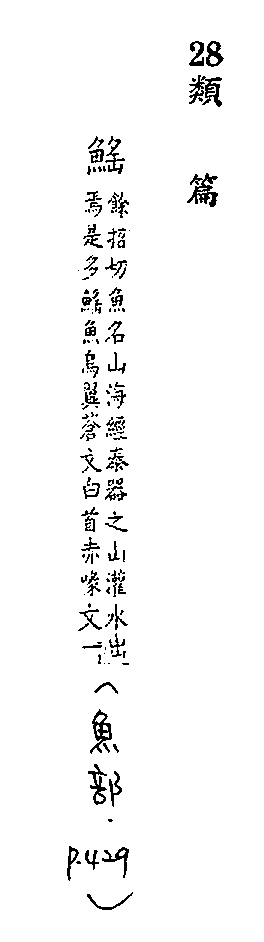 28 類篇
鰩
餘招切魚名山海經泰器之山灌水出
焉是多鰩魚鳥翼蒼文白首赤喙文一
(魚部・p.429)